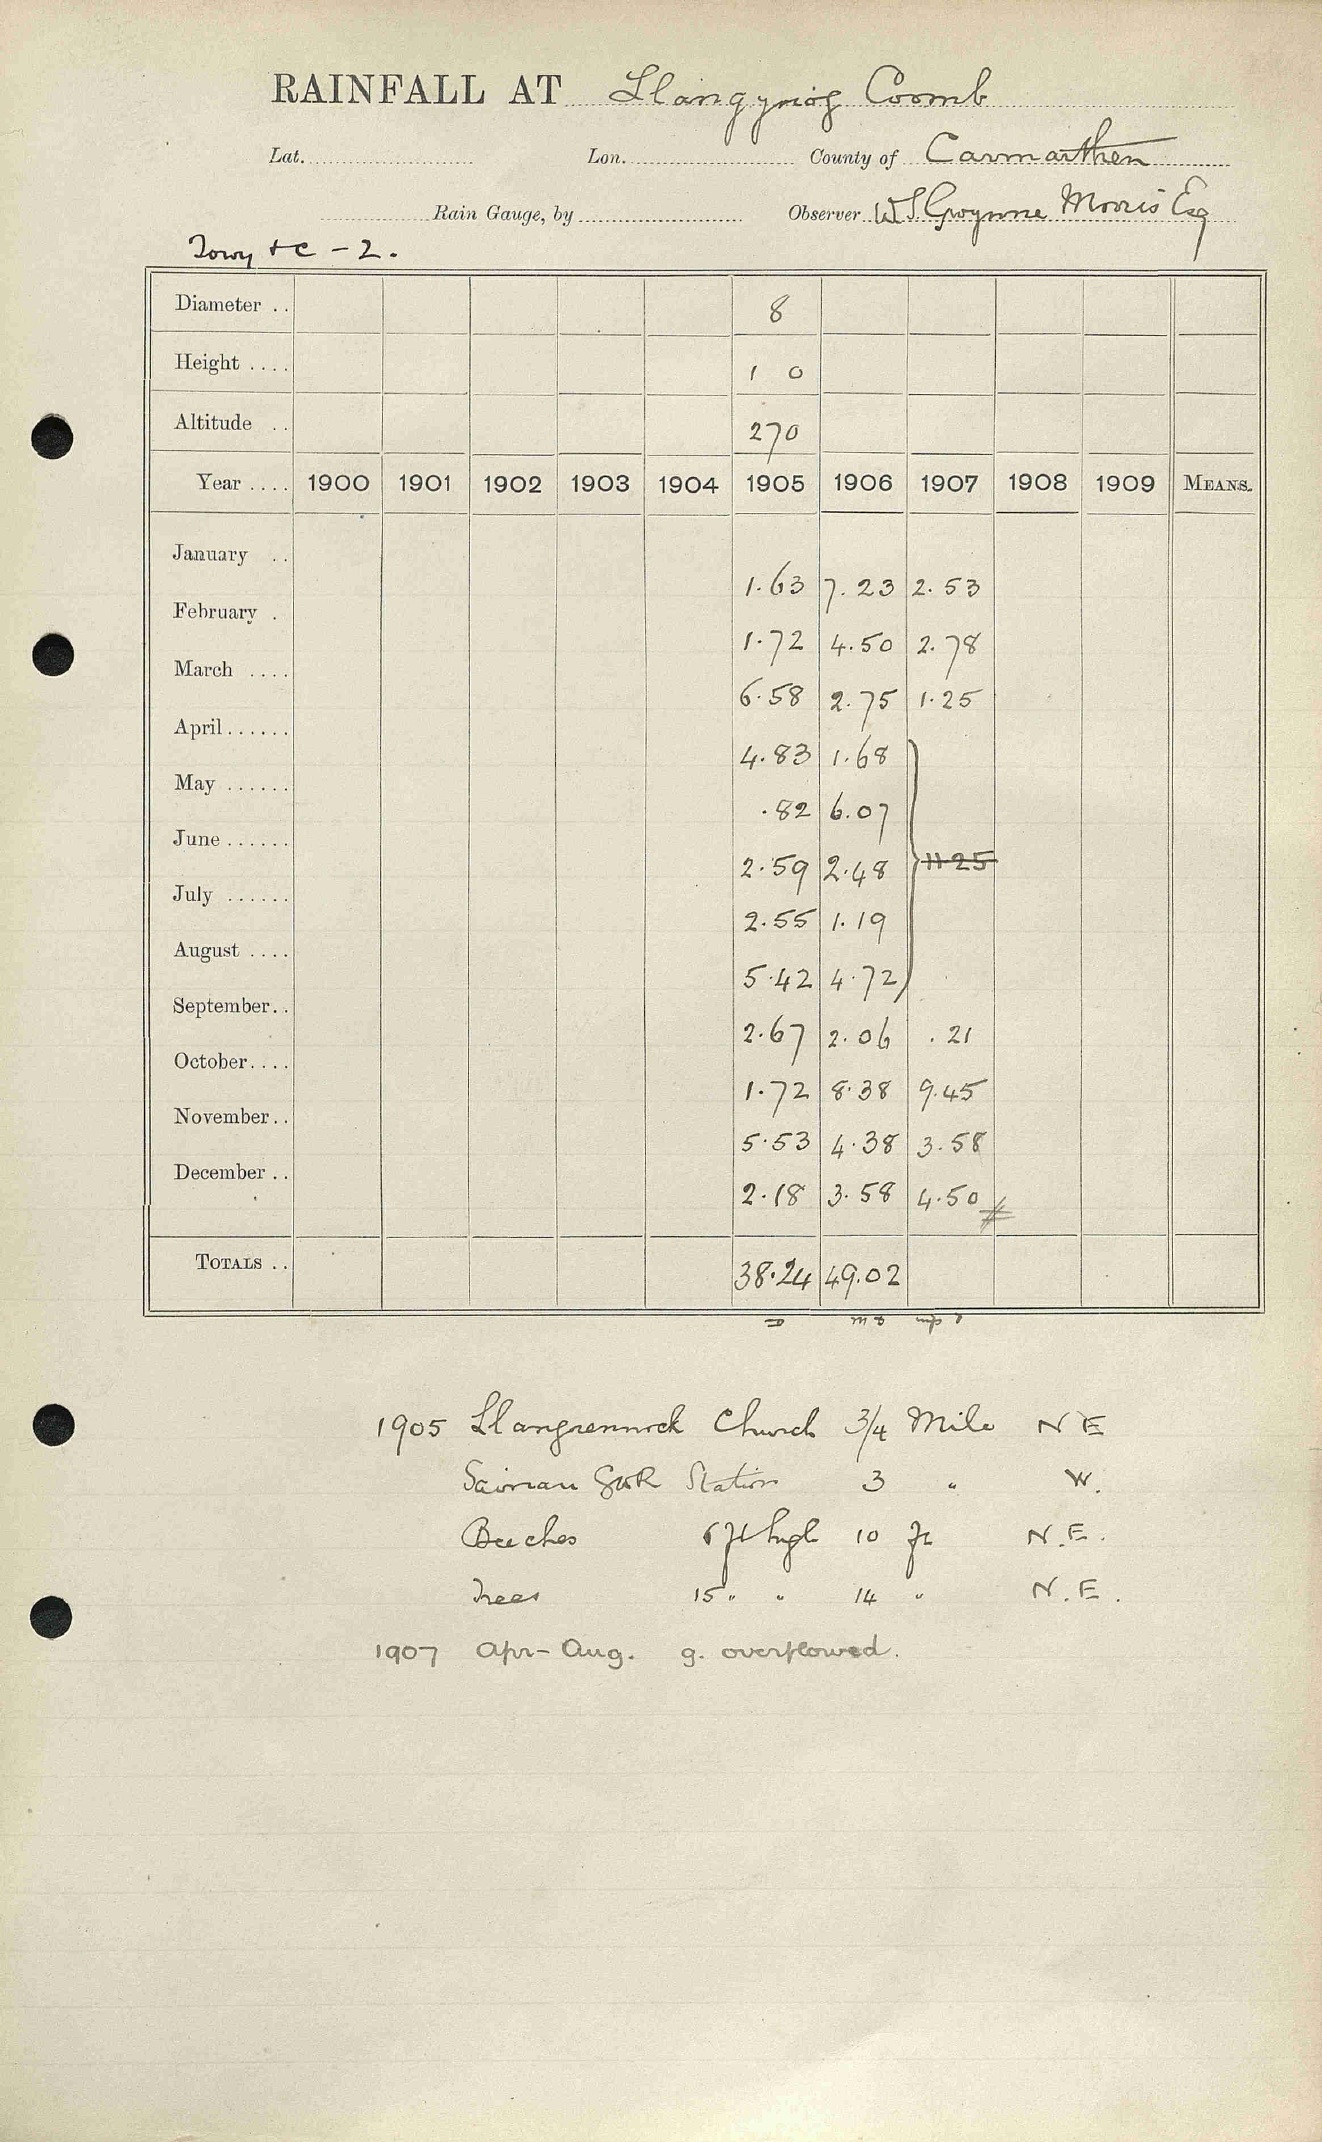 RAINFALL AT Llangynog Coomb
Lat. Lon. County of Carmarthen
Rain Gauge, by Observer W S Gwynne Morris Esq
Towy + c - 2.
Diameter .. 8
Height .... 1 0
Altitude .. 270
Year .... 1900 1901 1902 1903 1904 1905 1906 1907 1908 1909 MEANS.
January .. 1.63 7.23 2.53
February . 1.72 4.50 2.78
March .... 6.58 2.75 1.25
April...... 4.83 1.68
May ...... .82 6.07
June ...... 2.59 2.48 11.25
July ...... 2.55 1.19
August .... 5.42 4.72
September.. 2.67 2.06 .21
October.... 1.72 8.38 9.45
November.. 5.53 4.38 3.58
December .. 2.18 3.58 4.50
TOTALS .. 38.24 49.02
1905 Church 3/4 Mile N E
GWR Station 3 " W.
Beeches 6 ft high 10 ft N.E.
Trees 15 " " 14 " N.E.
1907 Apr - Aug. g. overflowed.